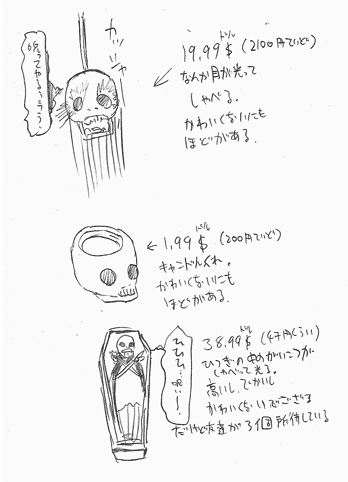 カッ
ッ
呪ってやるぅぅぅう
ドル
19.99$ (2100円ていど)
なんか目が光って
しゃべる。
かわいくないにも
ほどがある。
ドル
← 1.99$ (200円ていど)
キャンドル入れ。
かわいくないにも
ほどがある。
ひひひ〜呪い〜!
ドル
38.99$ (4千円くらい)
ひつぎの中のがいこつが
しゃべって光る。
高いし、でかいし
かわいくないでござる
だけど友達が3個所待している